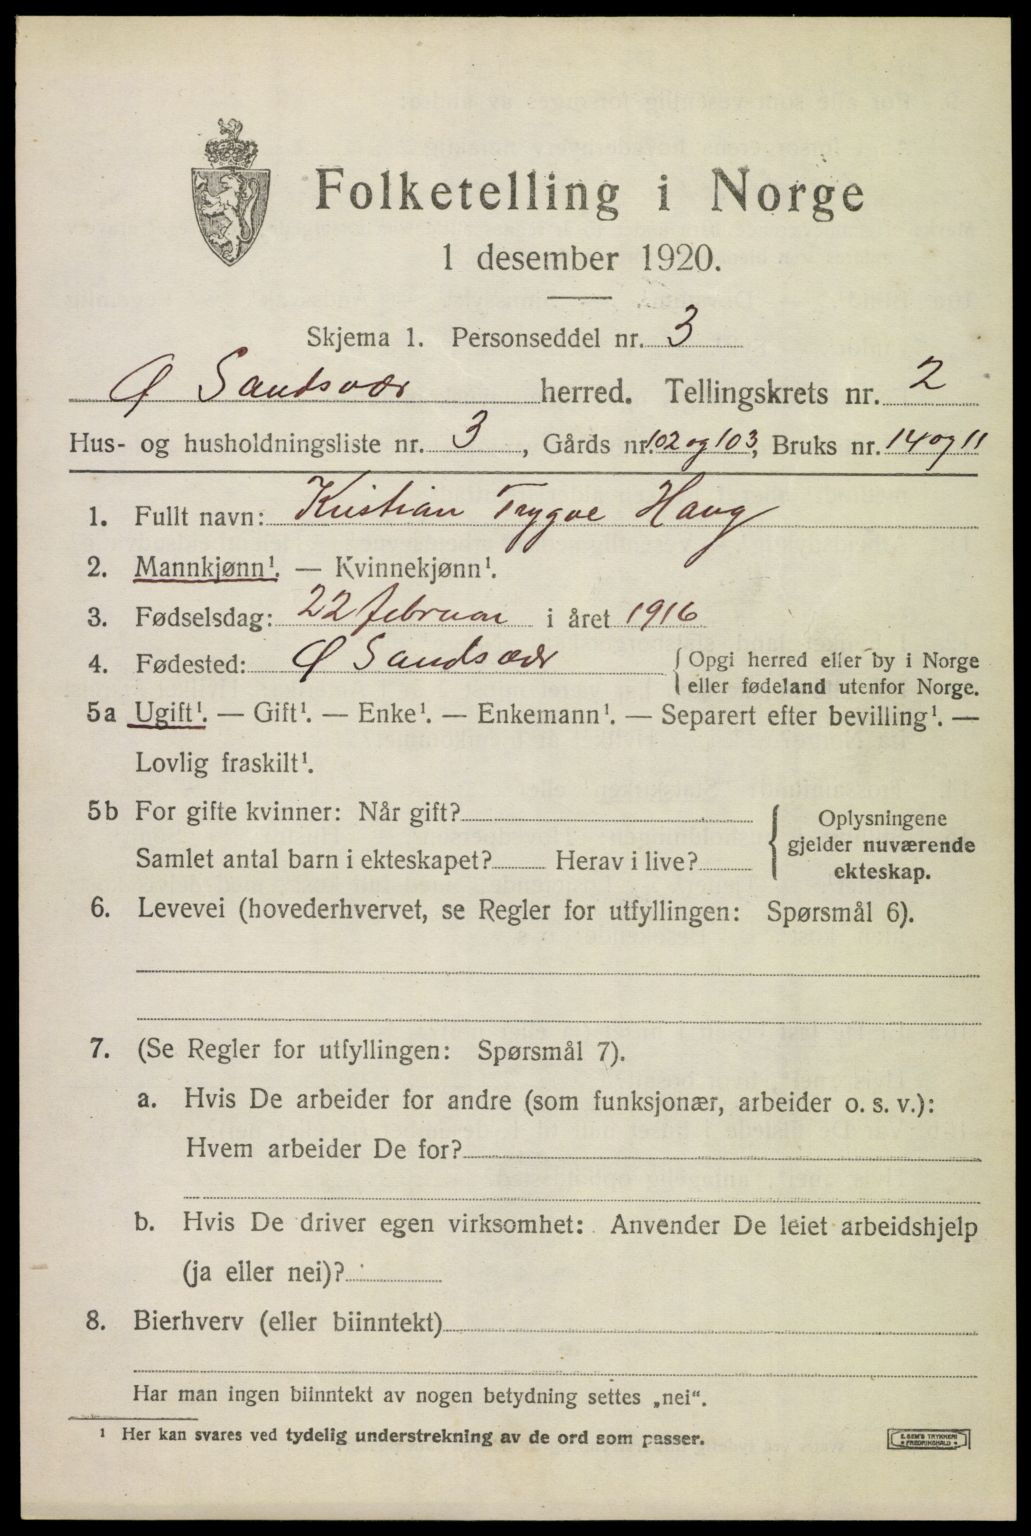 Folketelling i Norge
1 desember 1920.
Skjema 1. Personseddel nr. 3
Ø Sandsvær herred. Tellingskrets nr. 2
Hus- og husholdningsliste nr. 3, Gårds nr. 102 og 103, Bruks nr. 14 og 11
1. Fullt navn: Kristian Trygve Haug
2. Mannkjønn¹. — Kvinnekjønn¹.
3. Fødselsdag: 22 februar i året 1916
4. Fødested: Ø Sandsvær { Opgi herred eller by i Norge
eller fødeland utenfor Norge.
5a Ugift¹. — Gift¹. — Enke¹. — Enkemann¹. — Separert efter bevilling¹. —
Lovlig fraskilt¹.
5b For gifte kvinner: Når gift?
Samlet antal barn i ekteskapet? Herav i live?
{ Oplysningene
gjelder nuværende
ekteskap.
6. Levevei (hovederhvervet, se Regler for utfyllingen: Spørsmål 6).
7. (Se Regler for utfyllingen: Spørsmål 7).
a. Hvis De arbeider for andre (som funksjonær, arbeider o. s. v.):
Hvem arbeider De for?
b. Hvis De driver egen virksomhet: Anvender De leiet arbeidshjelp
(ja eller nei)?
8. Bierhverv (eller biinntekt)
Har man ingen biinntekt av nogen betydning settes „nei“.
¹ Her kan svares ved tydelig understrekning av de ord som passer.
E. SEM'S TRYKKERI
FREDRIKSHALD